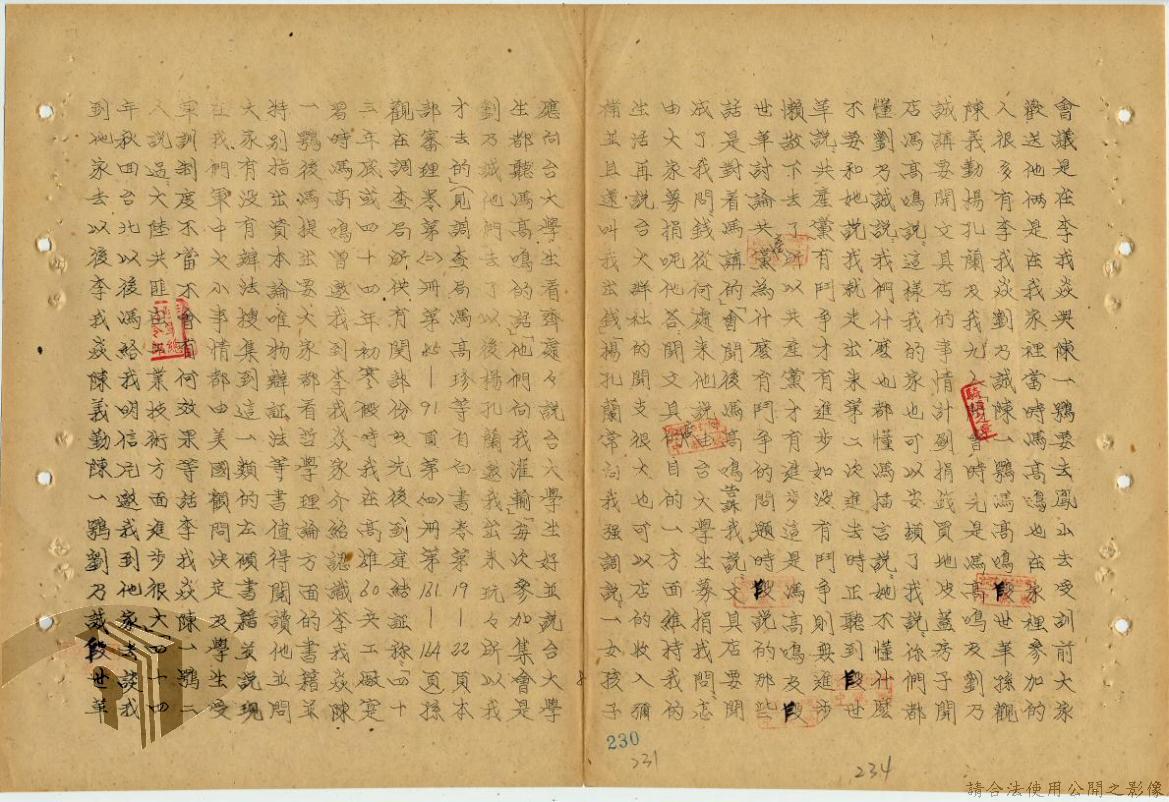 會議是在李我焱與陳一鶚要去鳳山去受訓前大家
歡送他倆是在我家裡當時馮高鳴也在家裡參加的
人很多有李我焱劉乃誠陳一鶚馮高鳴段世革孫觀
陳義勤揚孔蘭及我九人開會時先是馮高鳴及劉乃
誠講要開文具店的事情計劃捐錢買地皮蓋房子開
店馮高鳴說這樣我的家也可以安頓了我說你們都
懂劉乃誠說我們什麼也都懂馮描言說她不懂什麼
不要和她說我就走出來第二次進去時正聽到段世
革說共產黨有鬥爭才有進步如沒有鬥爭則無進步
懶散下去了所以共產黨才有進步這是馮高鳴及段
世革討論共產黨為什麼有鬥爭的問題時段說的那些
話是對着馮講的「會開後馮高鳴告訴我說文具店要開
成了我問錢從何處來他說由台大學生募捐我問怎
由大家募捐呢他答開文具店目的一方面維持我的
生活再說台大群社的開支很大也可以店的收入彌
補並且還叫我出錢「楊孔蘭常向我強調說一女孩子
應向台大學生看齊處々說台大學生好並說台大學
生都聽馮高鳴的話「他們向我灌輸「每次參加集會是
劉乃誠他們去了以後楊孔蘭邀我出來玩々所以我
才去的」(見調查局馮高珍等自白書卷第19—22頁本
部審理卷第(二)冊第85—91頁第(四)冊第161—164頁)孫
觀在調查局所供有関部份及先後到庭結証称「四十
三年底或四十四年初寒假時我在高雄60兵工廠寔
習時馮高鳴曾邀我到李我焱家介紹認識李我焱陳
一鶚後馮提出要大家都看哲學理論方面的書籍並
特別指出資本論唯物辯証法等書值得閱讀他並問
大家有沒有辦法搜集到這一類的左傾書籍並說現
在我們軍中大小事情都由美國顧問決定及學生受
軍訓制度不當不會有何效果等話李我焱陳一鶚二
人說過大陸共匪在業技術方面進步很大「四十四
年秋回台北以後馮給我明信片邀我到他家去談我
到他家去以後李我焱陳義勤陳一鶚劉乃誠段世革
230
231
234
請合法使用公開之影像